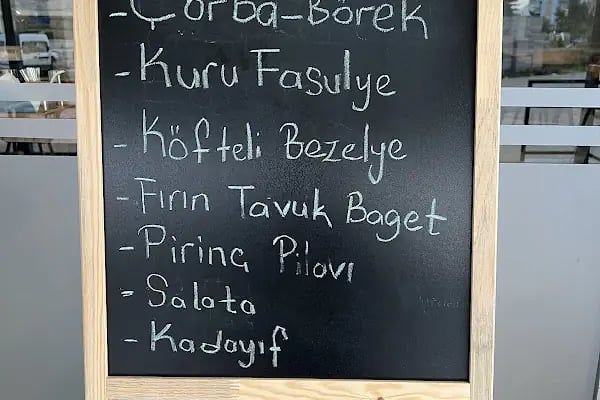 -Çorba-Börek
-Kuru Fasulye
-Köfteli Bezelye
-Fırın Tavuk Baget
-Pirinç Pilavı
-Salata
-Kadayıf